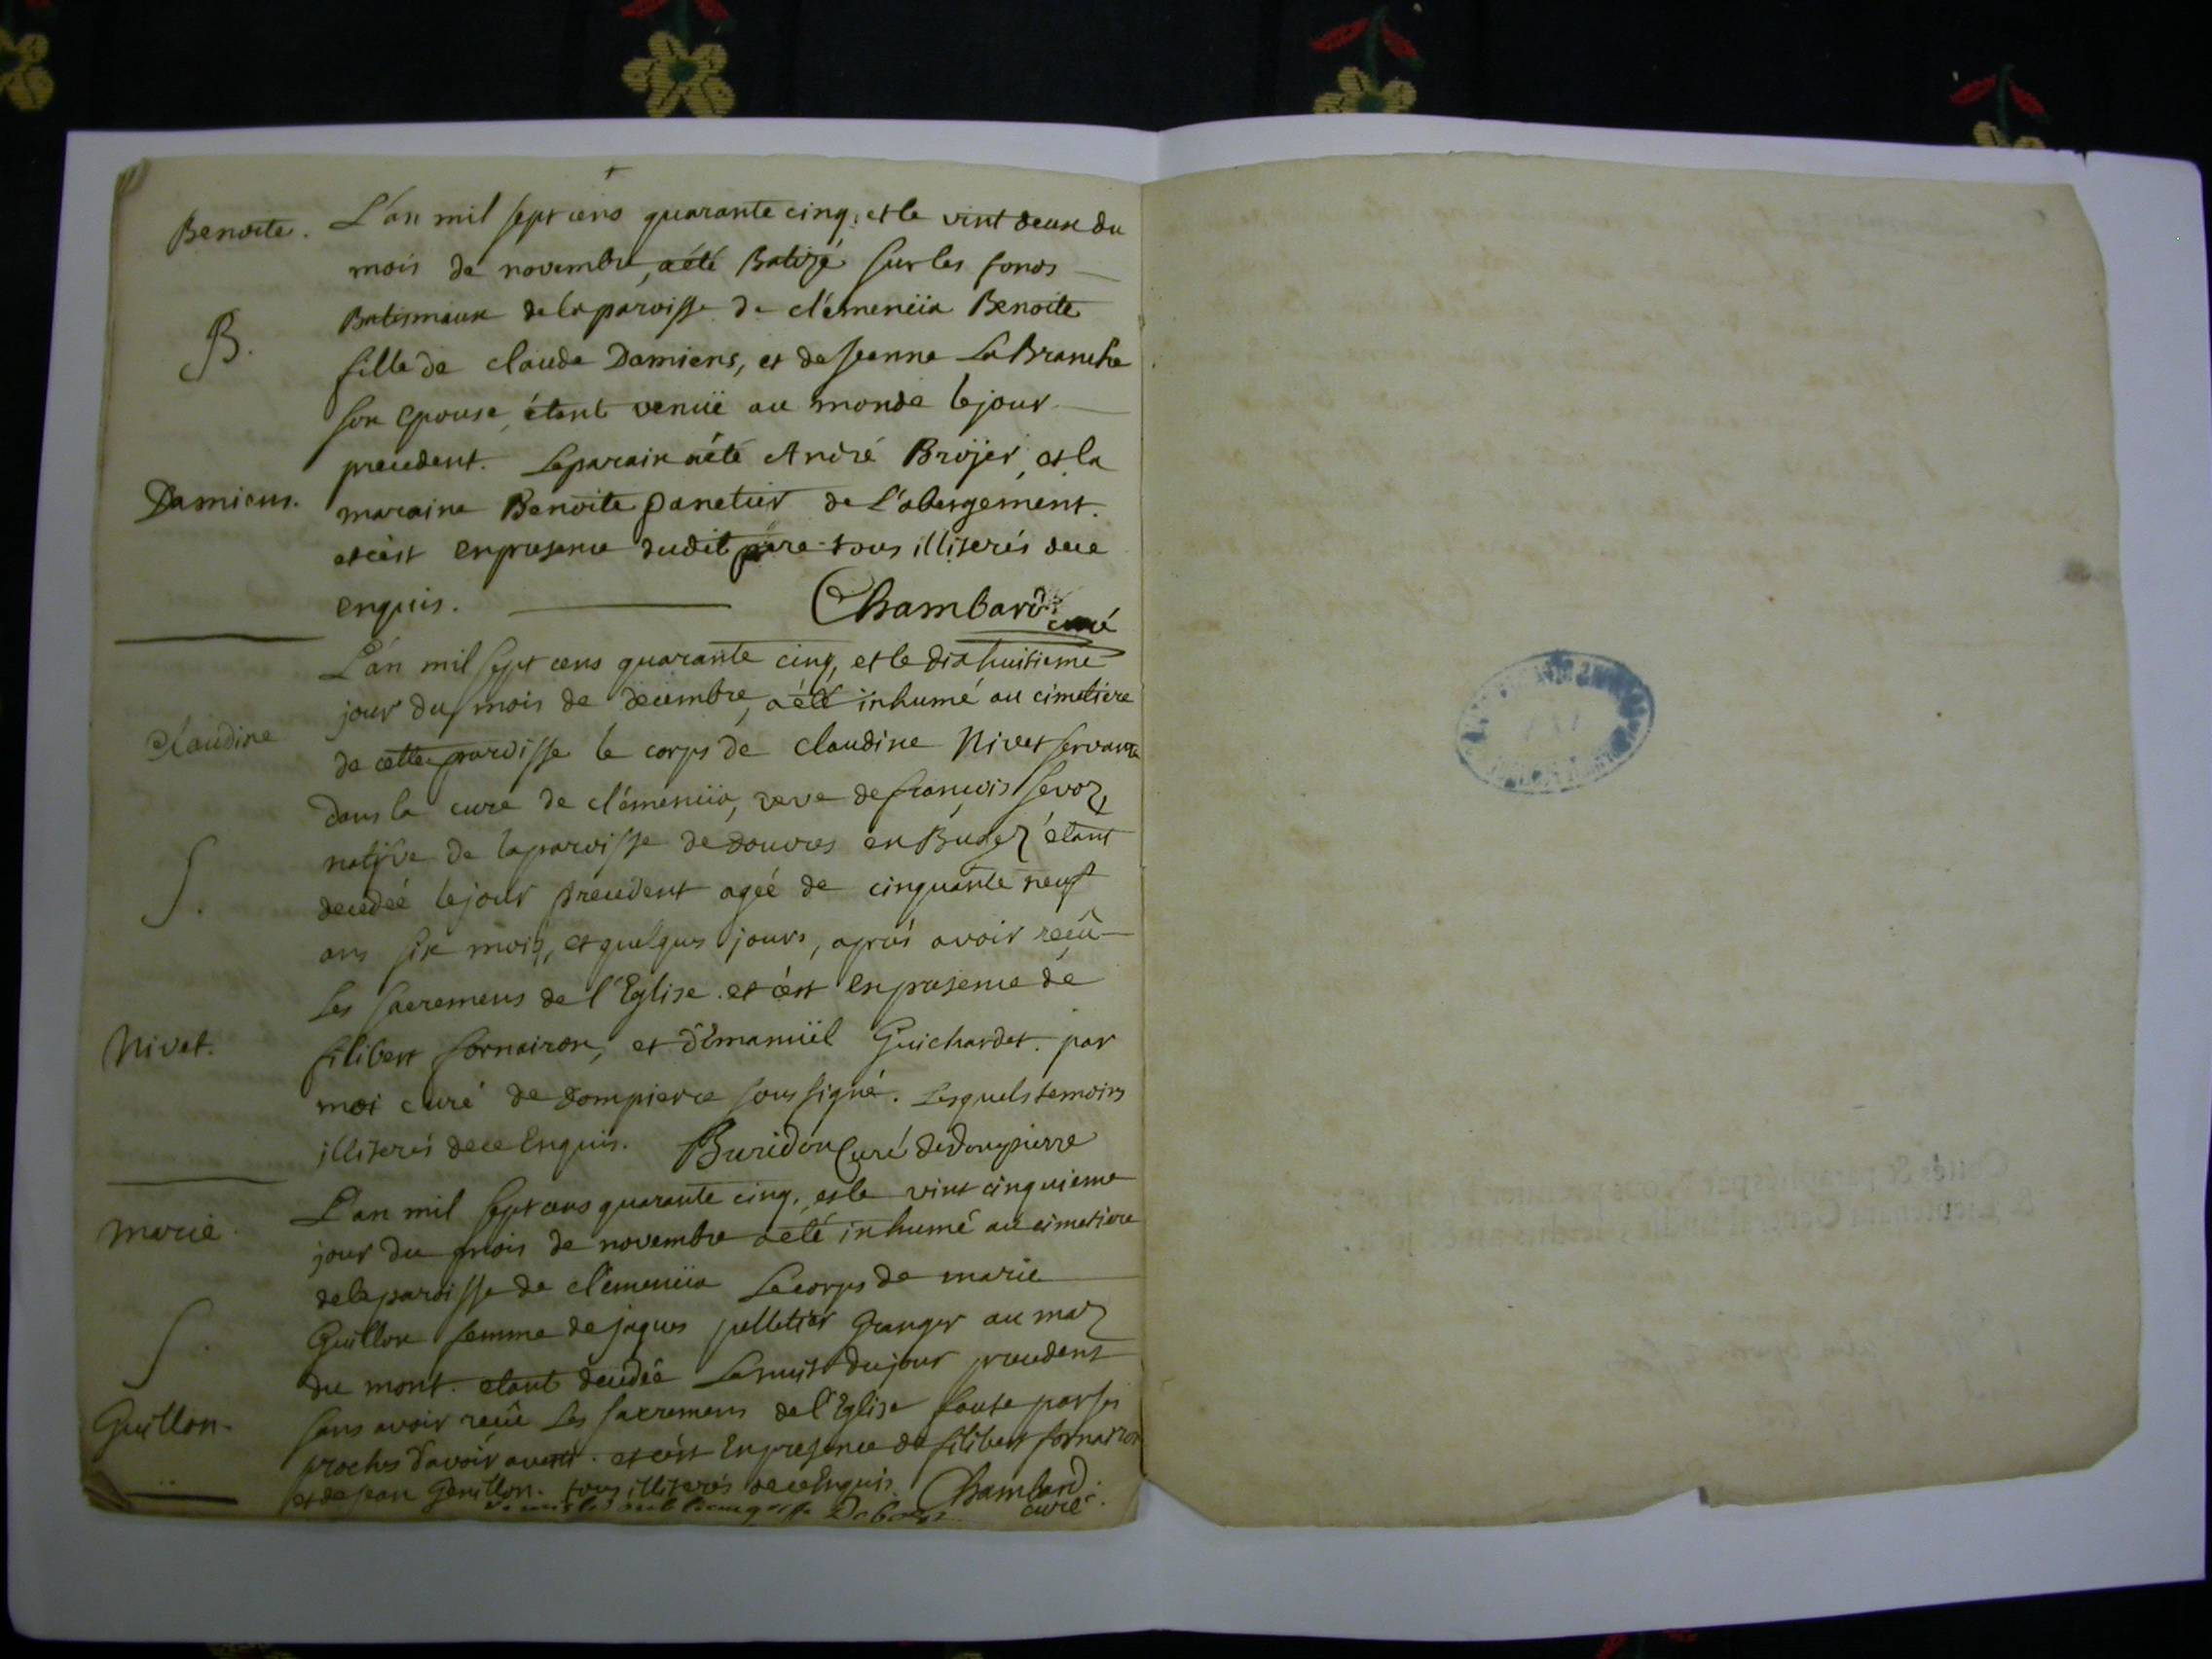 Benoite.
B.
Damiens.
L'an mil sept cens quarante cinq, et le vint deux du
mois de novembre, a été Batizé sur les fonds
Batismaux de la paroisse de clémenciia Benoite
fille de claude Damiens, et de Jeanne La Branche
son Epouse, étant venüe au monde le jour
precedent. Le parain a été André Bröjer, et la
maraine Benoite panetier de L'abergement.
et c'est en presence dudit père tous illiterés de ce
enquis.
Chambard curé
Claudine
S.
Nivet.
L'an mil sept cens quarante cinq, et le dix huitieme
jour du mois de decembre, a été inhumé au cimetiere
de cette paroisse le corps de claudine Nivet servante
dans la cure de clémenciia, veve de françois Sevoz,
natifve de la paroisse de douvres en Bugez étant
decedéé le jour precedent agéé de cinquante neuf
ans six mois, et quelques jours, aprés avoir reçû
Les sacremens de l'Eglise. et c'est en presence de
filibert fornairon, et d'Emanüel Guichardet. par
moi curé de dompierre sous signé. Lesquels temoins
illiterés de ce Enquis. Buridon Curé de Dompierre
Marie
S.
Guillon.
L'an mil sept cens quarante cinq, et le vint cinquieme
jour du mois de novembre a été inhumé au cimetiere
de la paroisse de clémenciia Le corps de marie
Guillon femme de jaques pelletier Granger au maz
du mont. etant decedéé La nuit du jour precedent
sans avoir reçûe Les sacremens de l'Eglise faute par ses
proches d'avoir averti. et c'est En presence de filibert fornairon
et de jean Guillon. tous illiterés de ce Enquis. Chambard
curé.